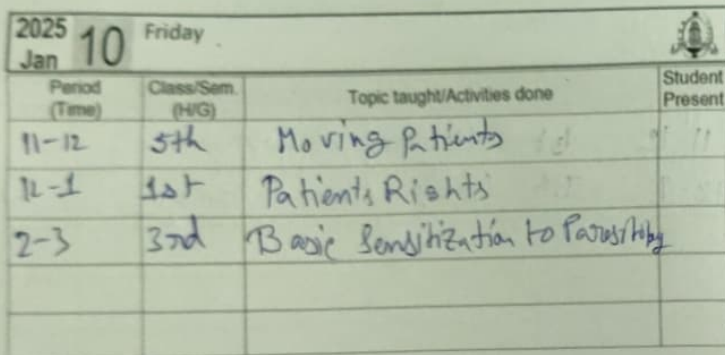 2025 Jan 10 Friday
Period (Time) Class/Sem. (H/G) Topic taught/Activities done Student Present
11-12 5th Moving Patients
12-1 1st Patients Rights
2-3 3rd Basic Sensitization to